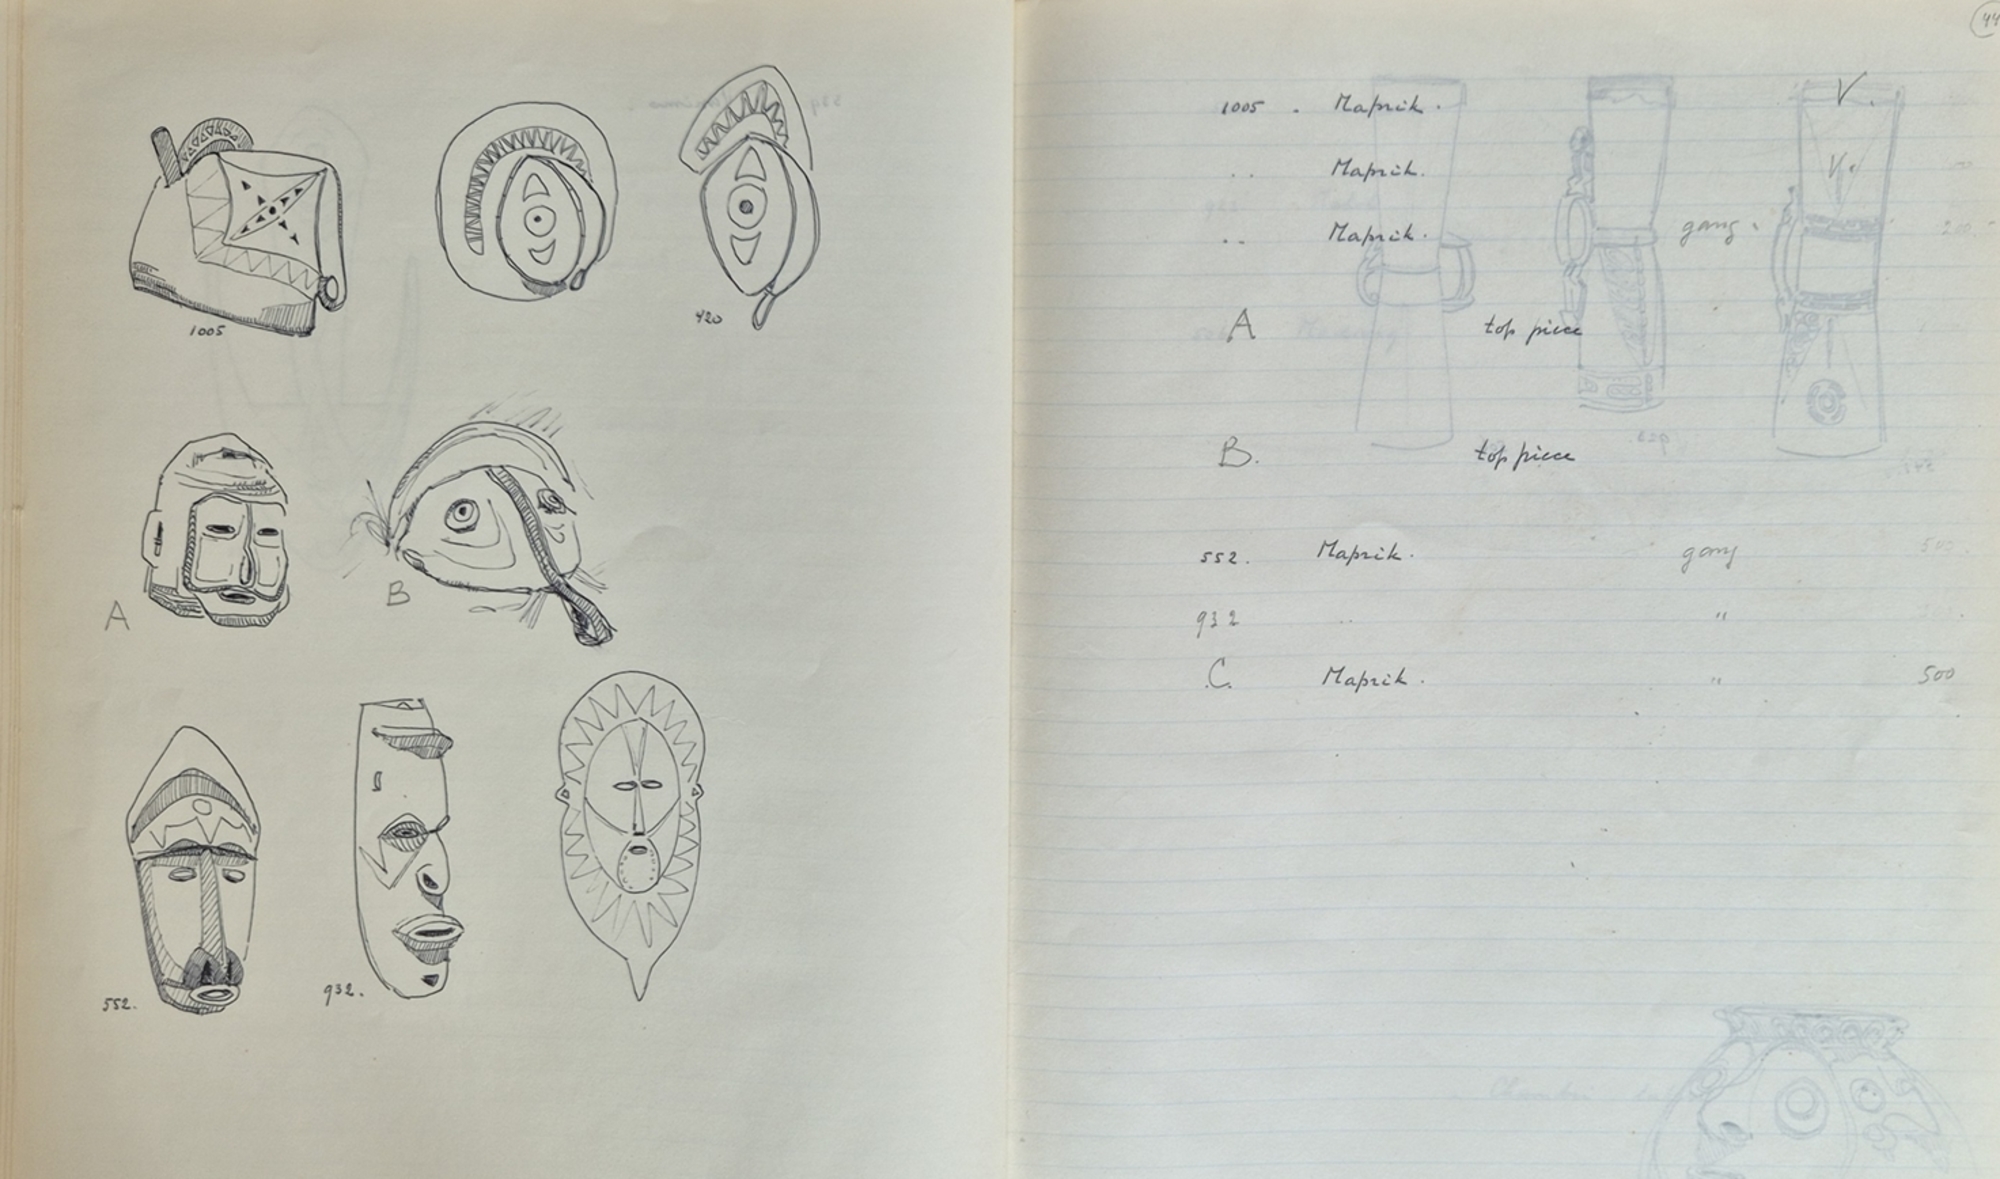 1005
420
A
B
552.
932.
44
1005 . Maprik .
.. Maprik.
.. Maprik. gang .
A top piece
B. top piece
552. Maprik . gang
932 .. "
C. Maprik . " 500